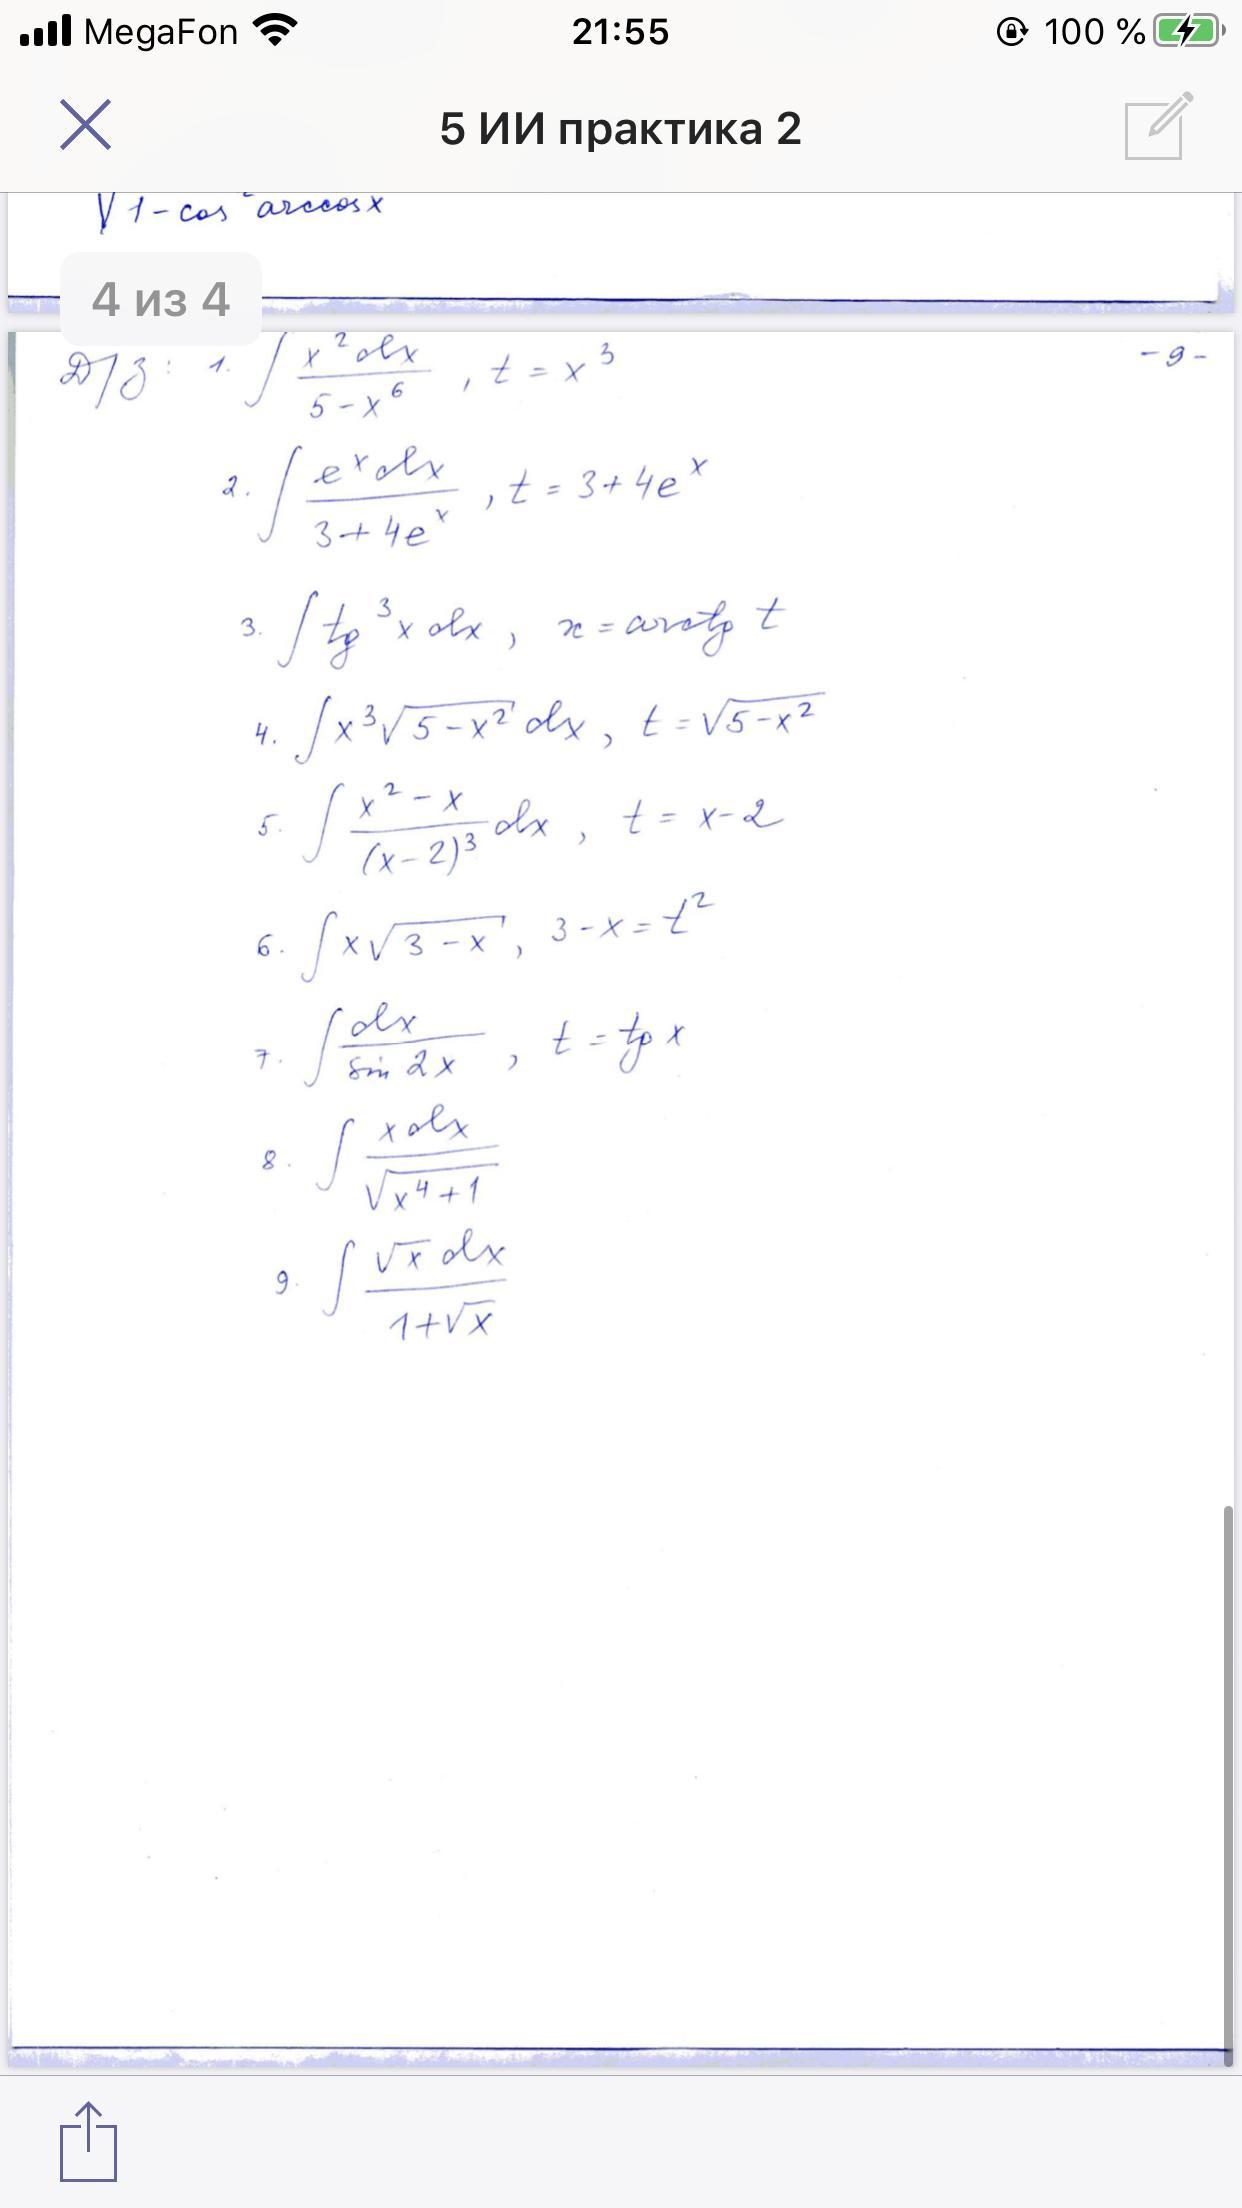 MegaFon 21:55 100 %
5 ИИ практика 2
√1-cos²arccosx
4 из 4
Д/З: 1. ∫ x²dx / (5-x⁶) , t = x³ -9-
2. ∫ eˣdx / (3+4eˣ) , t = 3+4eˣ
3. ∫ tg³x dx , x = arctg t
4. ∫ x³√(5-x²) dx , t = √(5-x²)
5. ∫ (x²-x) / (x-2)³ dx , t = x-2
6. ∫ x√(3-x) , 3-x = t²
7. ∫ dx / sin 2x , t = tg x
8. ∫ xdx / √(x⁴+1)
9. ∫ √x dx / (1+√x)